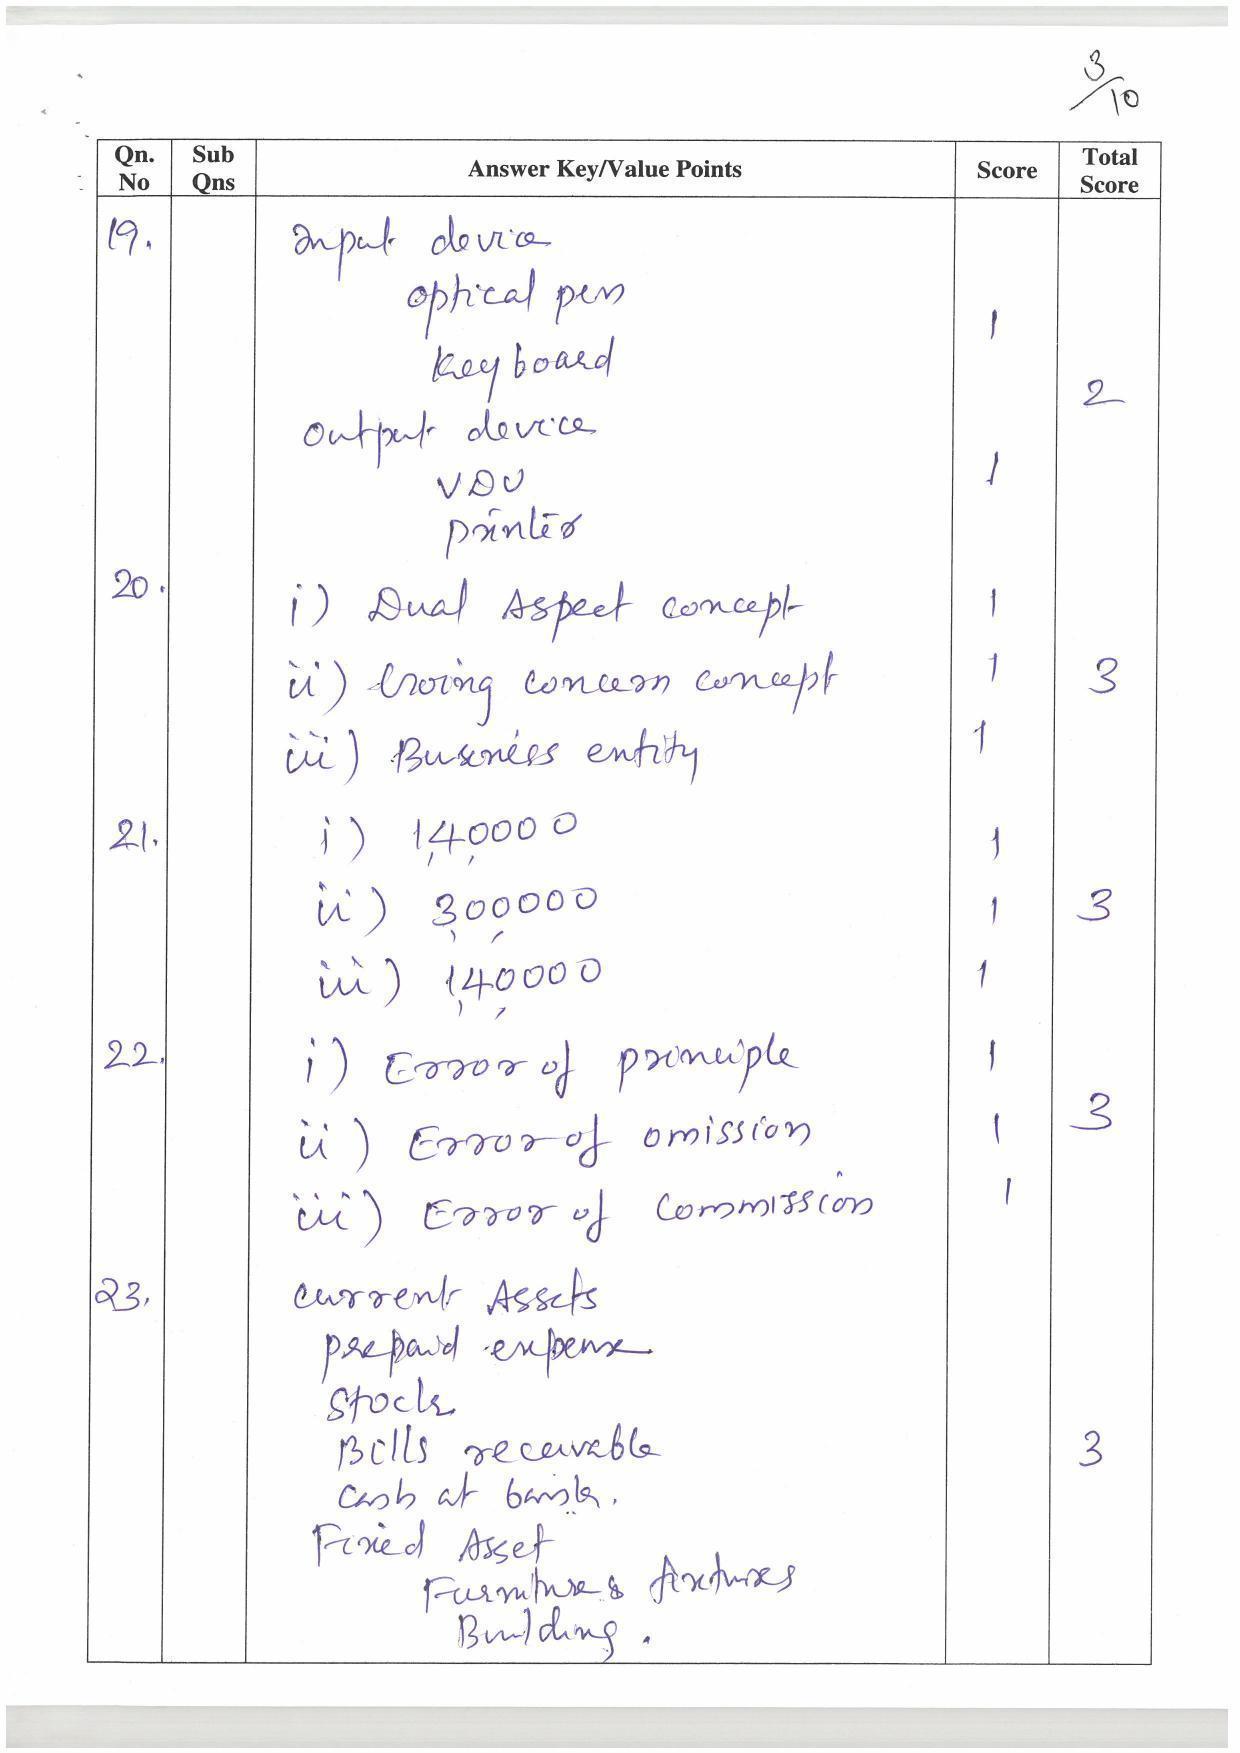 3/10
Qn. No Sub Qns Answer Key/Value Points Score Total Score
19. Input device
optical pen
Keyboard 1
2
Output device
VDU 1
printer
20. i) Dual Aspect concept 1
ii) Going concern concept 1 3
iii) Business entity 1
21. i) 1,40,000 1
ii) 3,00,000 1 3
iii) 1,40,000 1
22. i) Error of principle 1
ii) Error of omission 1 3
iii) Error of Commission 1
23. Current Assets
prepaid expense
Stock
Bills receivable 3
Cash at bank.
Fixed Asset
Furniture & fixtures
Building.